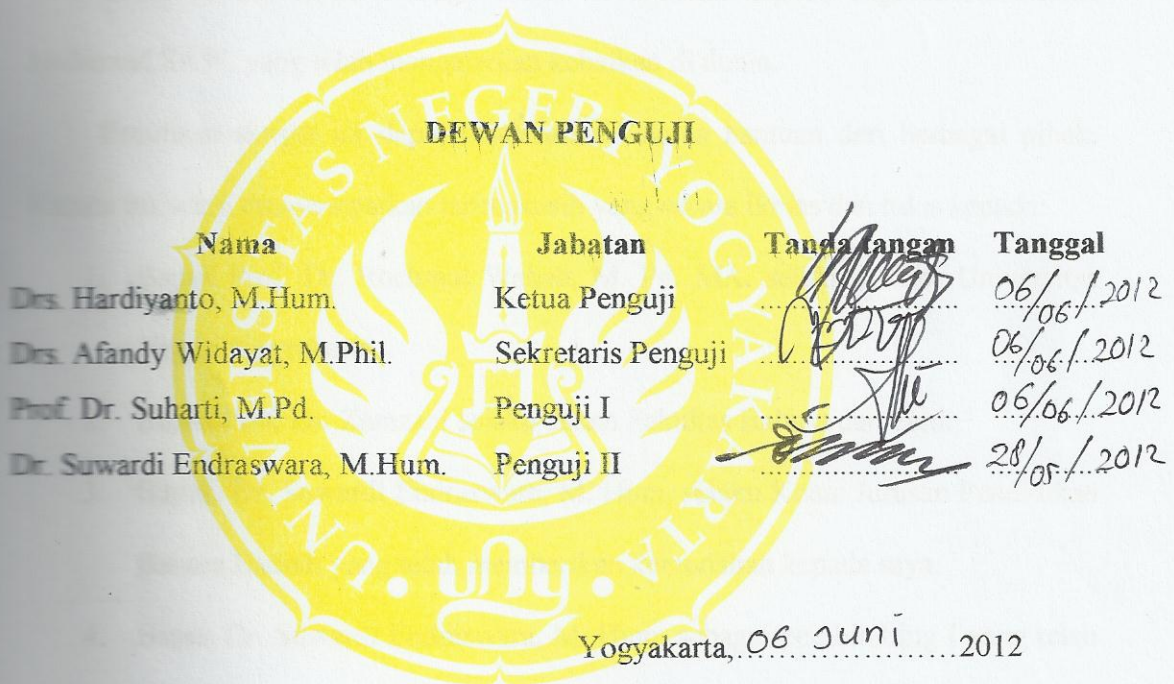 DEWAN PENGUJI
Nama Jabatan Tanda tangan Tanggal
Drs. Hardiyanto, M.Hum. Ketua Penguji 06/06/2012
Drs. Afandy Widayat, M.Phil. Sekretaris Penguji 06/06/2012
Prof. Dr. Suharti, M.Pd. Penguji I 06/06/2012
Dr. Suwardi Endraswara, M.Hum. Penguji II 28/05/2012
UNIVERSITAS NEGERI YOGYAKARTA
uny
Yogyakarta, 06 Juni 2012